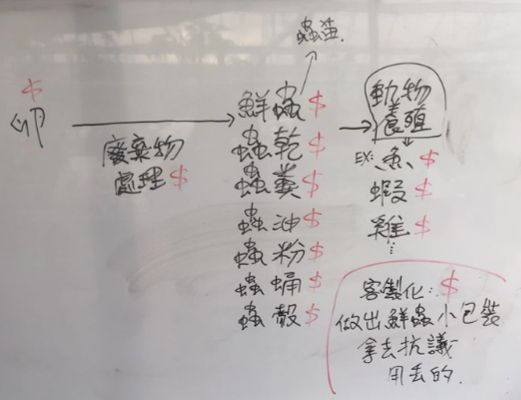 蟲蛋
$
卵
廢棄物
處理 $
鮮蟲 $
蟲乾 $
蟲糞 $
蟲油 $
蟲粉 $
蟲蛹 $
蟲殼 $
動物
養殖
EX: 魚 $
蝦 $
雞 $
⋮
客製化: $
做出鮮蟲小包裝
拿去抗議
用丟的.